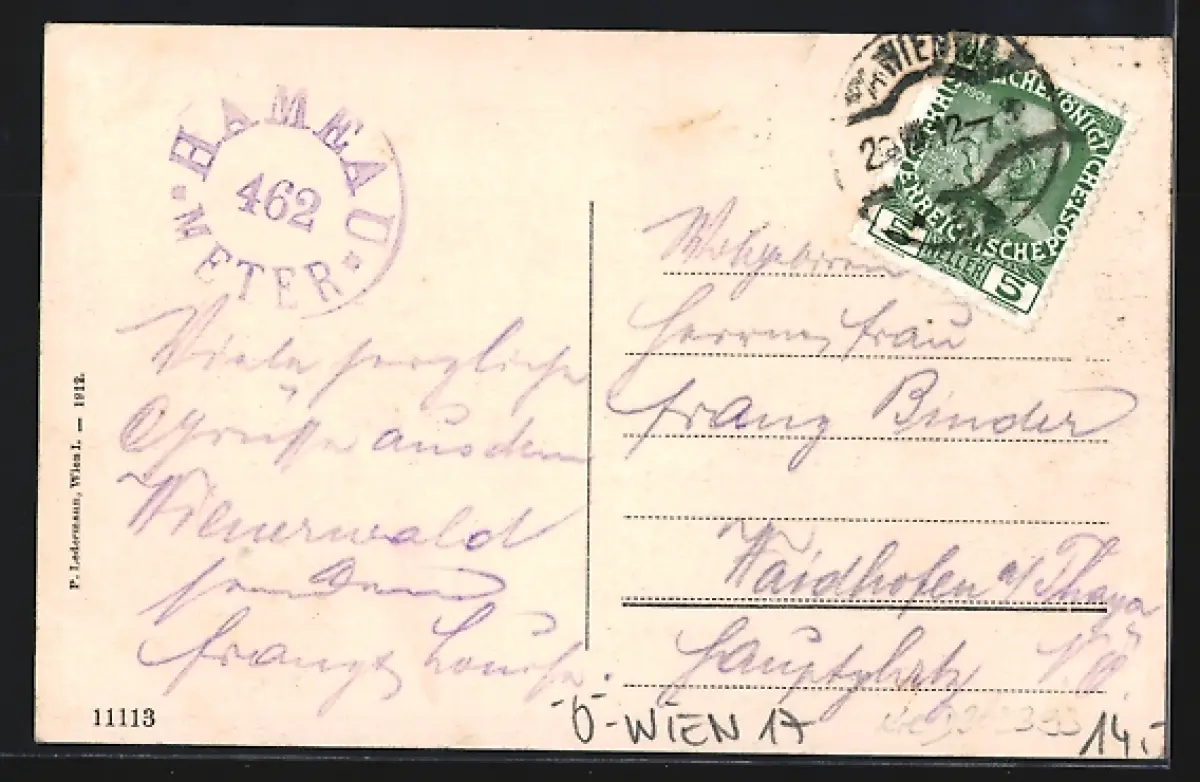 HAMEAU
462
METER
WIEN
KAISERLICHE KÖNIGLICHE
ÖSTERREICHISCHE POST
1908
5 HELLER 5
Viele herzliche
Grüsse aus dem
Wienerwald
senden
Franz Louise.
Wohlgeboren
Herrn Frau
Franz Binder
Waidhofen a/Thaya
Hauptplatz N.Ö.
P. Ledermann, Wien I. — 1912.
11113
Ö-WIEN 17
14.-